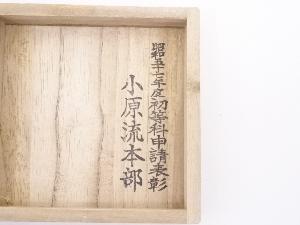 昭和五十七年度初等科申請表彰
小原流本部